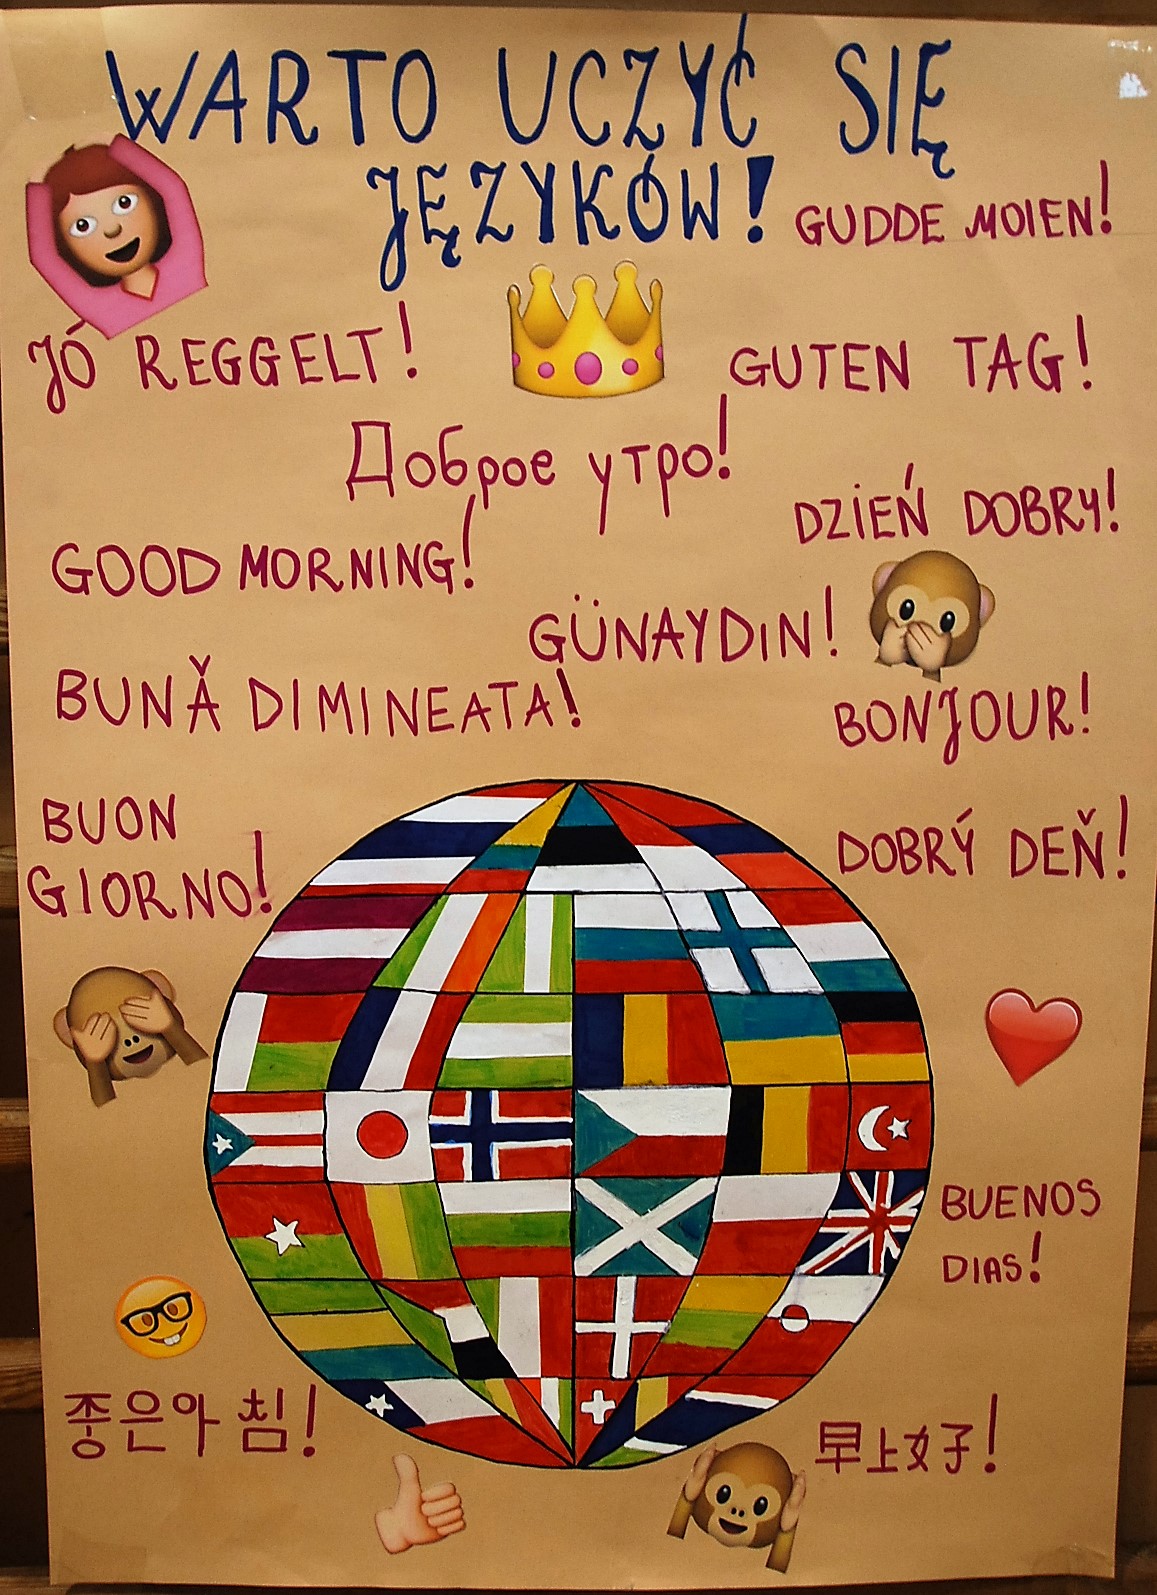 WARTO UCZYĆ SIĘ
JĘZYKÓW!
GUDDE MOIEN!
JÓ REGGELT!
GUTEN TAG!
Доброе утро!
DZIEŃ DOBRY!
GOOD MORNING!
GÜNAYDIN!
BUNĂ DIMINEATA!
BONJOUR!
BUON
GIORNO!
DOBRÝ DEŇ!
BUENOS
DIAS!
좋은아 침!
早上好!